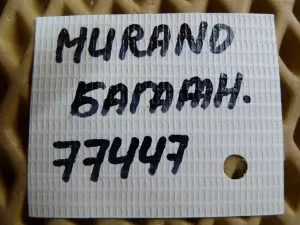 MURANO
БАГАЖН.
77447